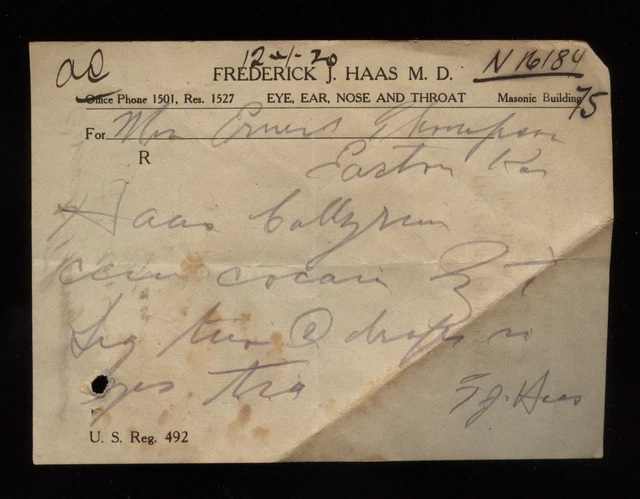 ac 12-1-20 N 16184
FREDERICK J. HAAS M. D.
Office Phone 1501, Res. 1527 EYE, EAR, NOSE AND THROAT Masonic Building 75
For Mrs Ernest Thompson
R Easton Ka
Haas Collyrium
cum cocain
Sig two drops in
eyes
F J. Haas
U. S. Reg. 492